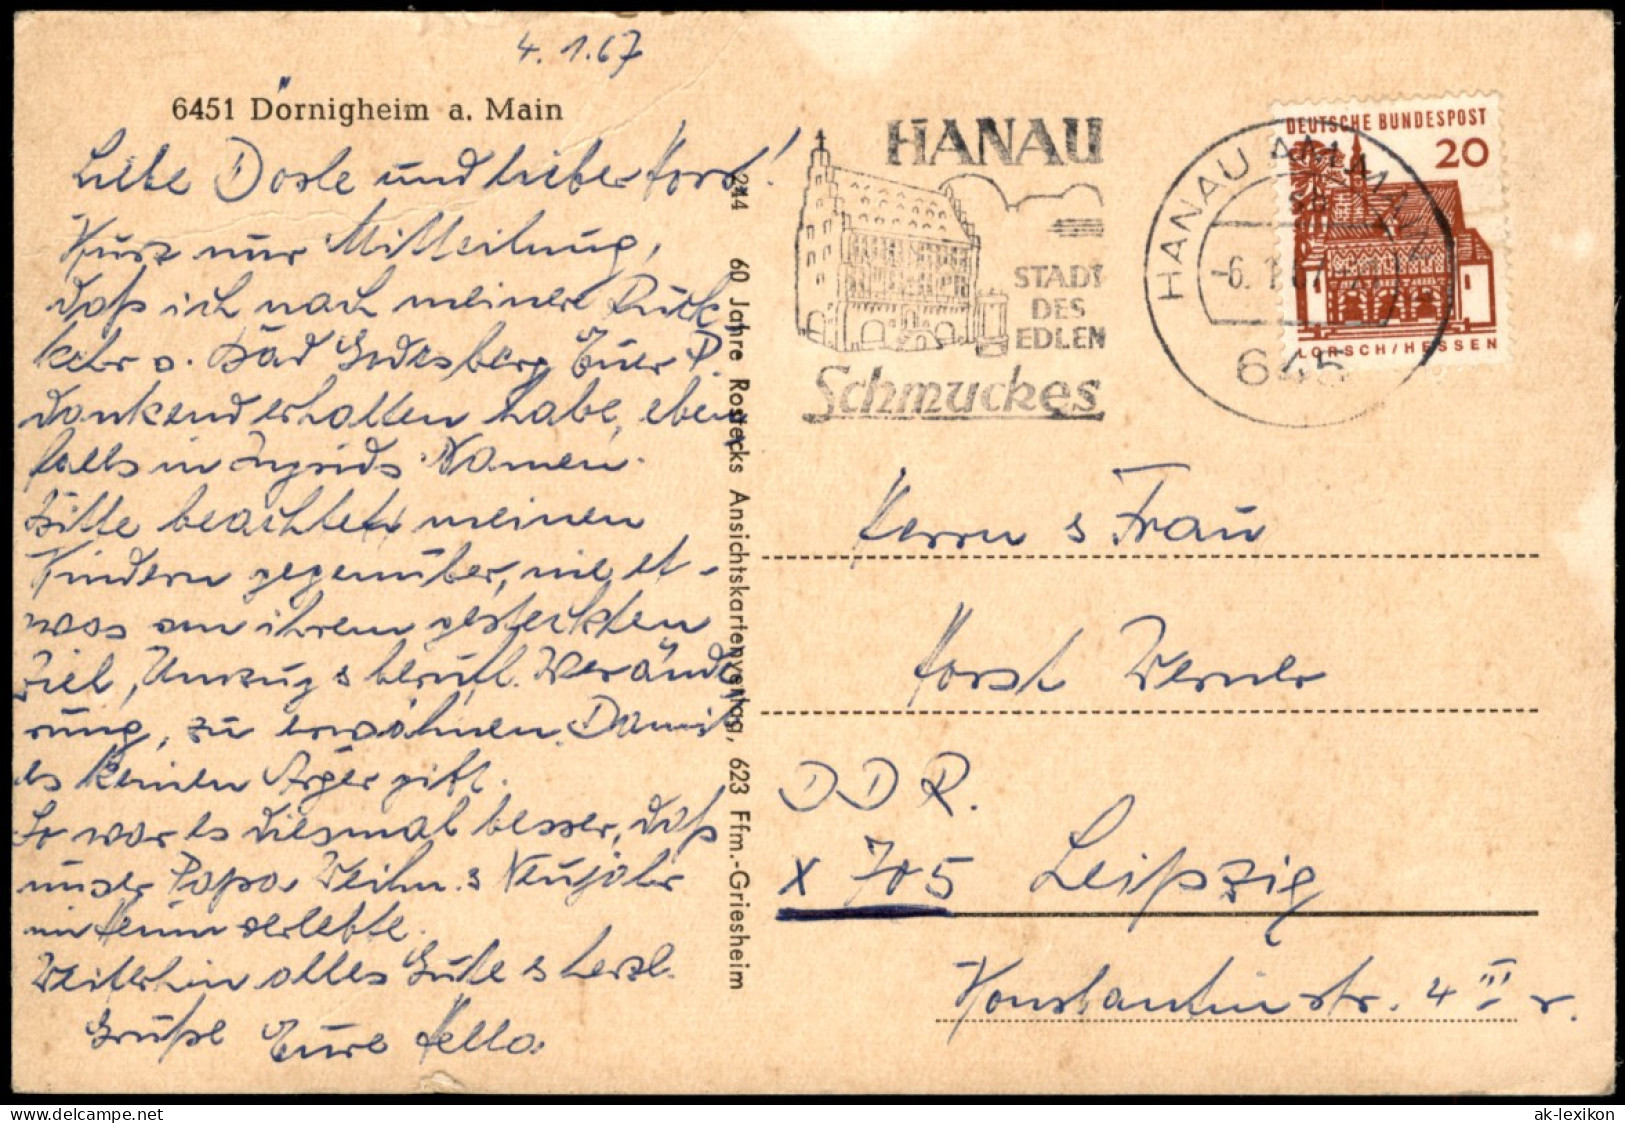 4.1.67
6451 Dörnigheim a. Main
Liebe Dosle und lieber Horst!
Kurz nur Mitteilung,
daß ich nach meiner Rück
kehr v. Bad Godesberg Euer P.
dankend erhalten habe, eben
falls in Ingrids Namen.
Bitte beachtet meinen
Kindern gegenüber, nie et-
was von ihrem gesteckten
Ziel, Umzug & berufl. Verände
rung, zu erwähnen. Damit
es keinen Ärger gibt.
So war es diesmal besser, daß
unser Papa Weihn. & Neujahr
im Heim verlebte.
Weiterhin alles Gute & herzl.
Grüße Eure Hella.
244 60 Jahre Rostecks Ansichtskartenverlag, 623 Ffm.-Griesheim
HANAU
STADT
DES
EDLEN
Schmuckes
HANAU AM MAIN
-6.1.67
645
DEUTSCHE BUNDESPOST
20
LORSCH/HESSEN
Herrn & Frau
Horst Werner
DDR.
X 705 Leipzig
Konstantinstr. 4 III r.
ak-ansichtskarten.de
ak-lexikon